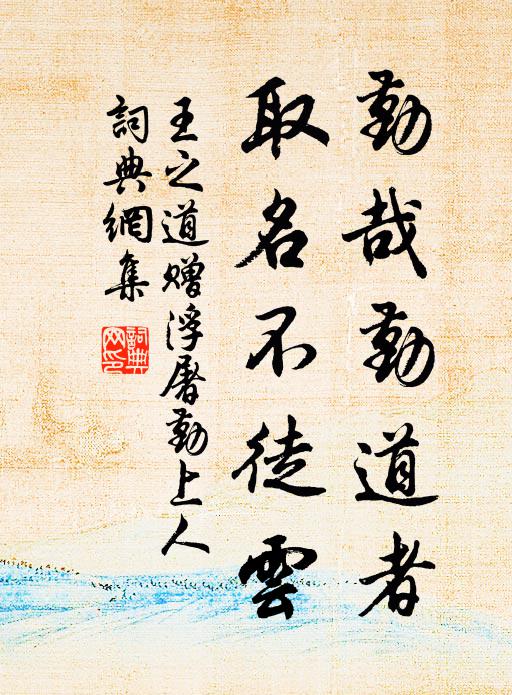 勤哉勤道者
取名不徒雲
王之道赠浮屠勤上人
詞典網集
詞典网印